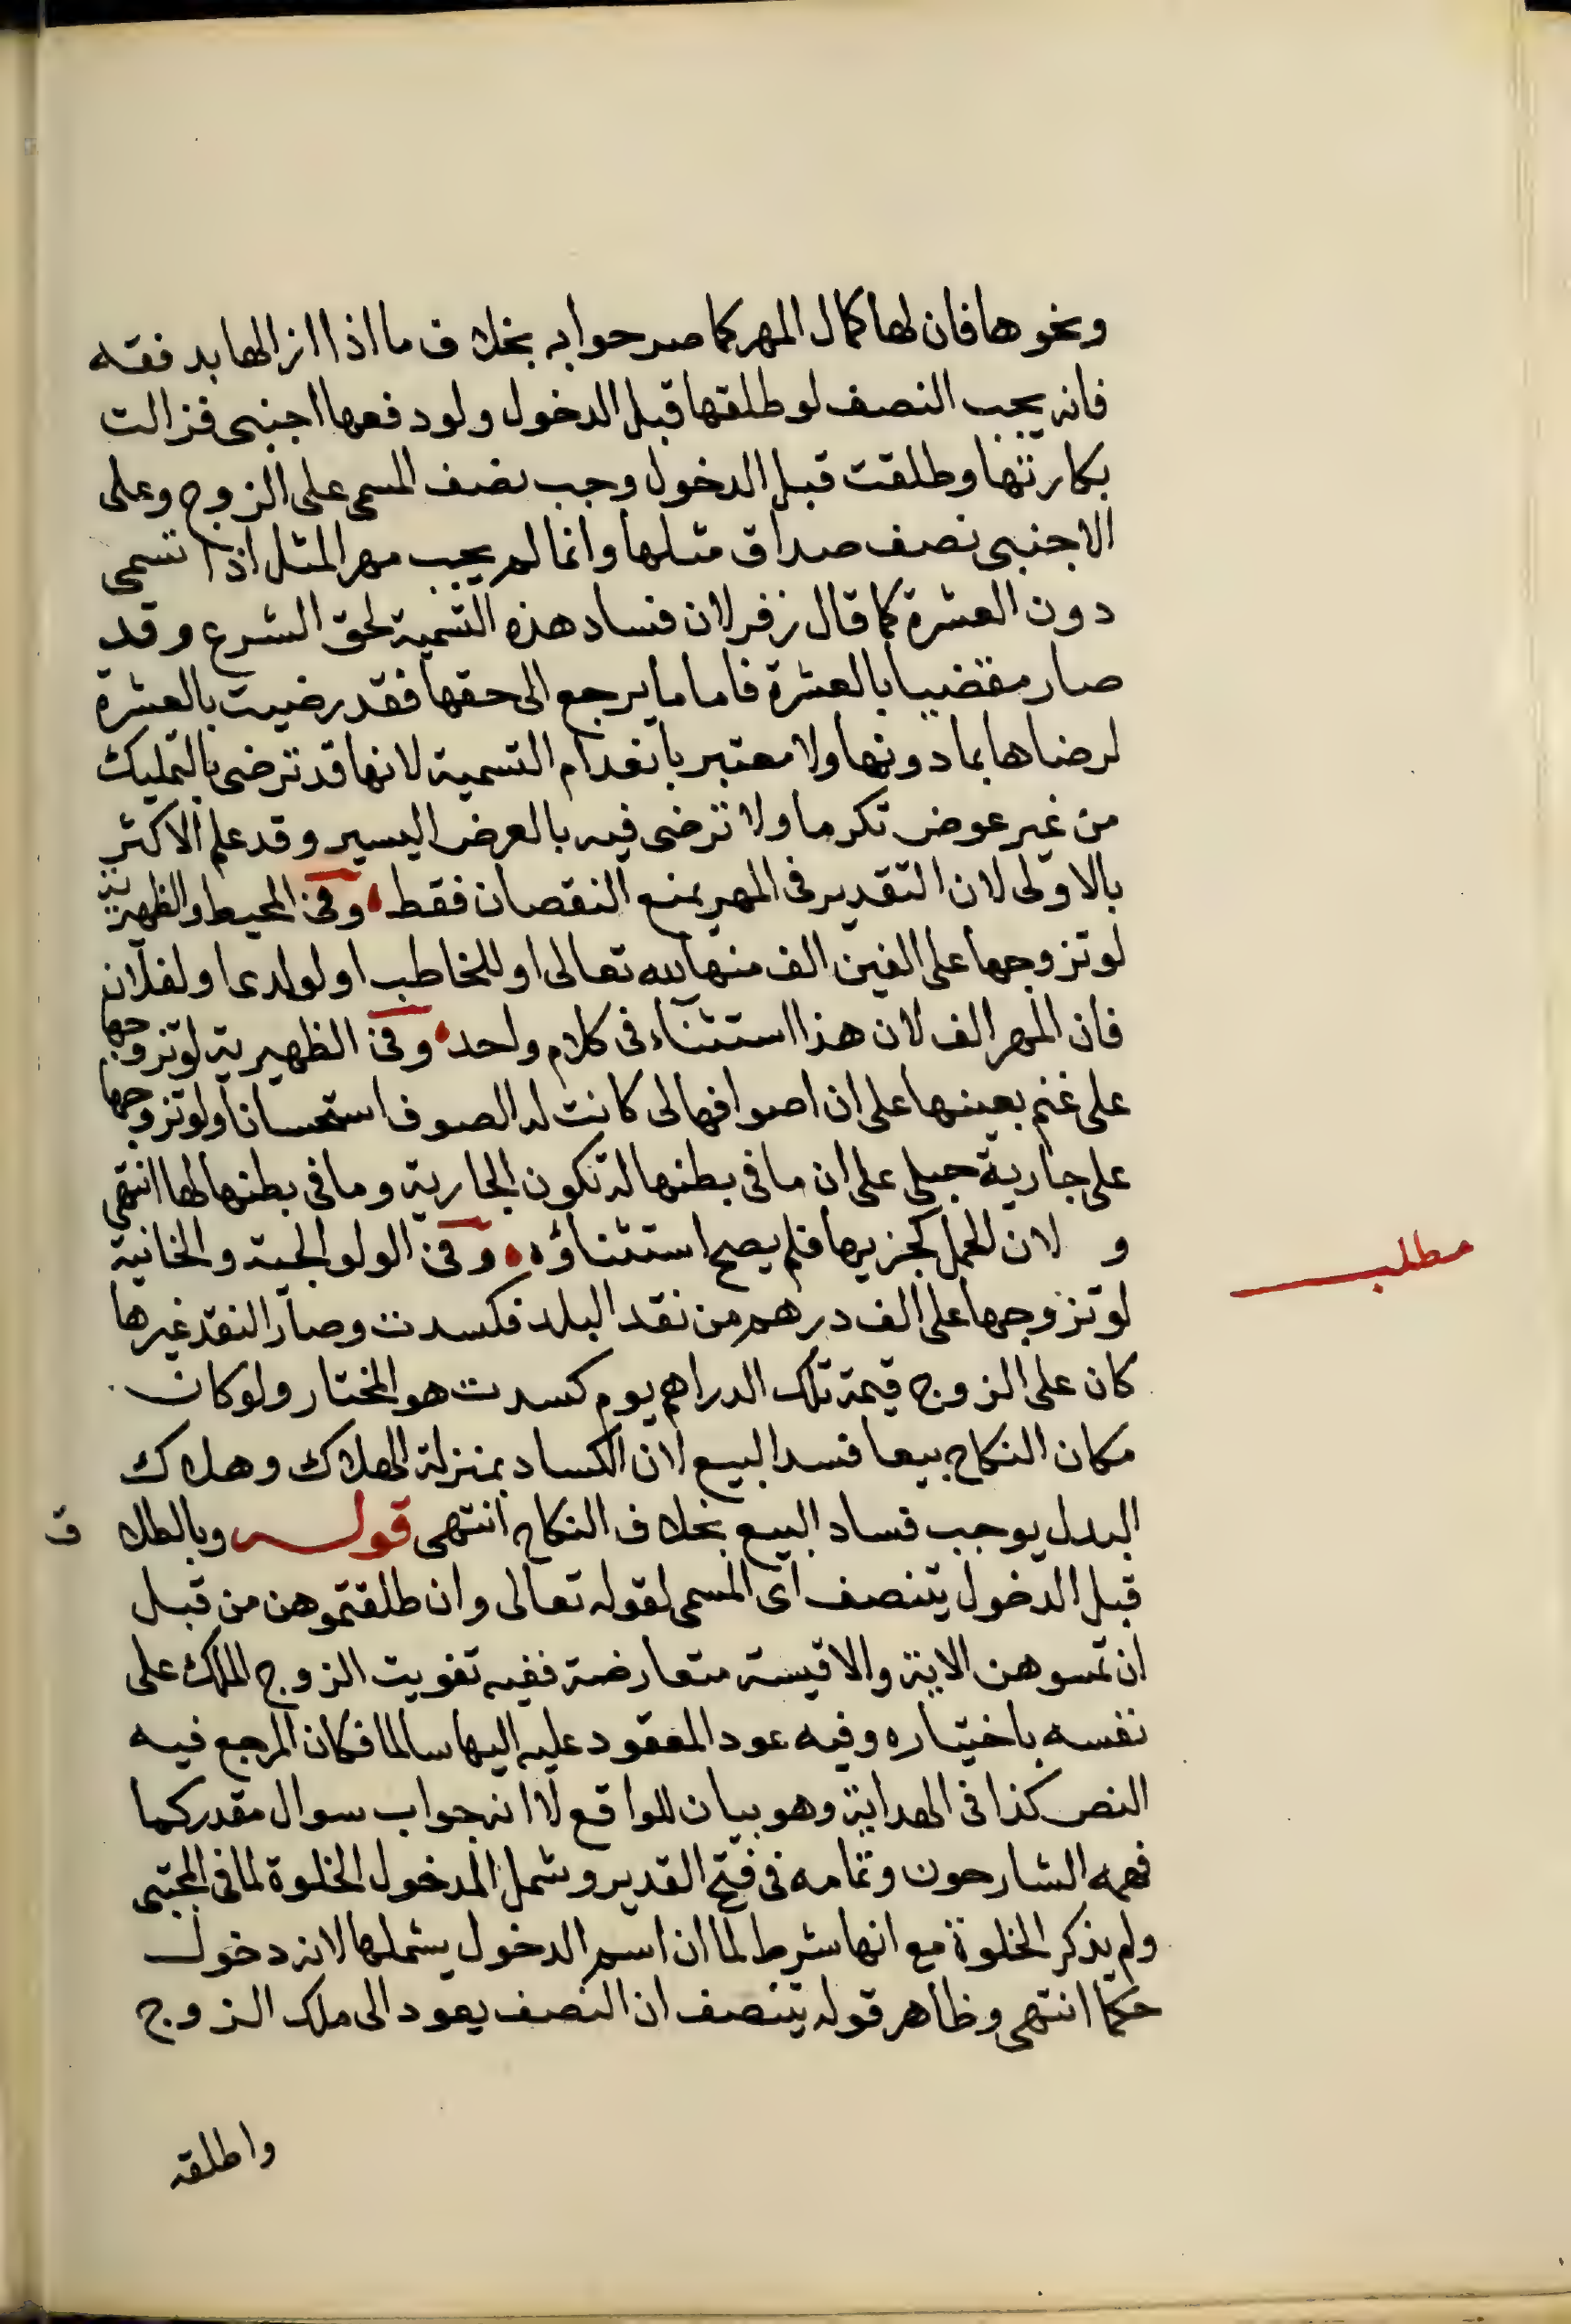 ونحوها فان لها كمال المهر كما صرحوا به بخلاف ما اذا ازالها بدفقه
فانه يجب النصف لو طلقها قبل الدخول ولو دفعها اجنبى فزالت
بكارتها وطلقت قبل الدخول وجب نصف المسمى على الزوج وعلى
الاجنبى نصف صداق مثلها وانما لم يجب مهر المثل اذا تسمى
دون العشرة كما قال زفر لان فساد هذه التسمية لحق الشرع وقد
صار مقضيا بالعشرة فاما ما يرجع الى حقها فقد رضيت بالعشرة
لرضاها بما دونها ولا معتبر بانعدام التسمية لانها قد ترضى بالتمليك
من غير عوض تكرما ولا ترضى فيه بالعرض اليسير وقد علم الاكثر
بالاولى لان التقدير فى المهر يمنع النقصان فقط وفى المحيط والظهيرية
لو تزوجها على الفين الف منها لله تعالى او للخاطب او لولدى او لفلان
فان المهر الف لان هذا استثناء فى كلام واحد وفى الظهيرية لو تزوجها
على غنم بعينها على ان اصوافها لى كانت له الصوف استحسانا ولو تزوجها
على جارية حبلى على ان ما فى بطنها له تكون الجارية وما فى بطنها لها انتهى
و لان الحمل كجزيها فلم يصح استثناؤه وفى الولوالجية والخانية
مطلب
لو تزوجها على الف درهم من نقد البلد فكسدت وصار النقد غيرها
كان على الزوج قيمة تلك الدراهم يوم كسدت هو المختار ولو كان
مكان النكاح بيعا فسد البيع لان الكساد بمنزلة الهلاك وهلاك
البدل يوجب فساد البيع بخلاف النكاح انتهى قوله وبالطلاق
قبل الدخول يتنصف اى المسمى لقوله تعالى وان طلقتموهن من قبل
ان تمسوهن الاية والاقيسة متعارضة ففيه تفويت الزوج الملك على
نفسه باختياره وفيه عود المعقود عليه اليها سالما فكان المرجع فيه
النص كذا فى الهداية وهو بيان للواقع لا انه جواب سوال مقدر كما
فهمه الشارحون وتمامه فى فتح القدير وشمل الدخول الخلوة لما فى المجتبى
ولم يذكر الخلوة مع انها شرط لما ان اسم الدخول يشملها لانه دخول
حكما انتهى وظاهر قوله يتنصف ان النصف يعود الى ملك الزوج
واطلقه